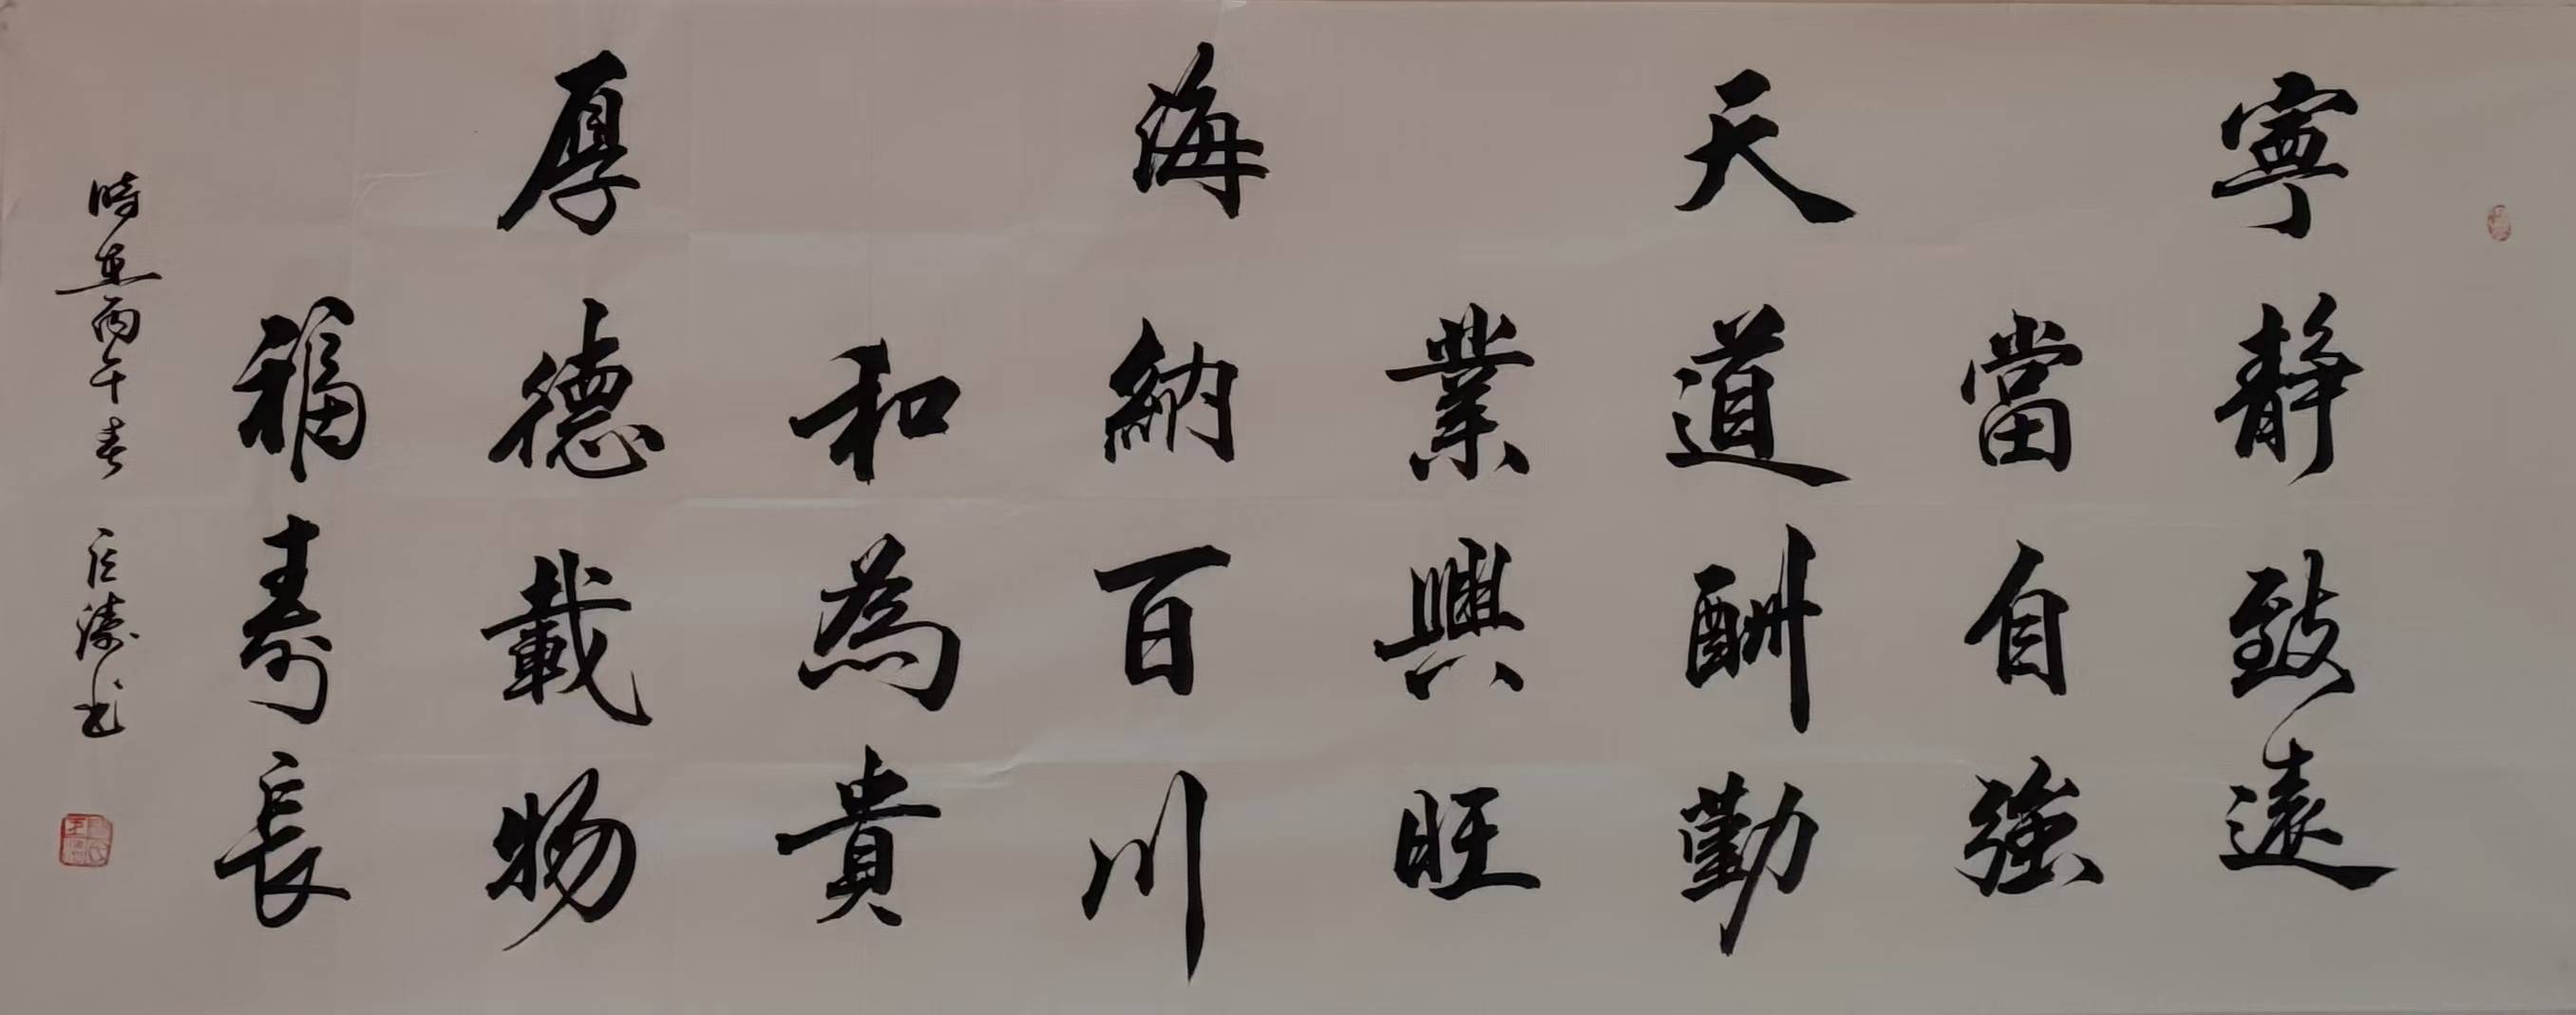 寧靜致遠
當自強
天道酬勤
業興旺
海納百川
和為貴
厚德載物
福壽長
時在丙午春